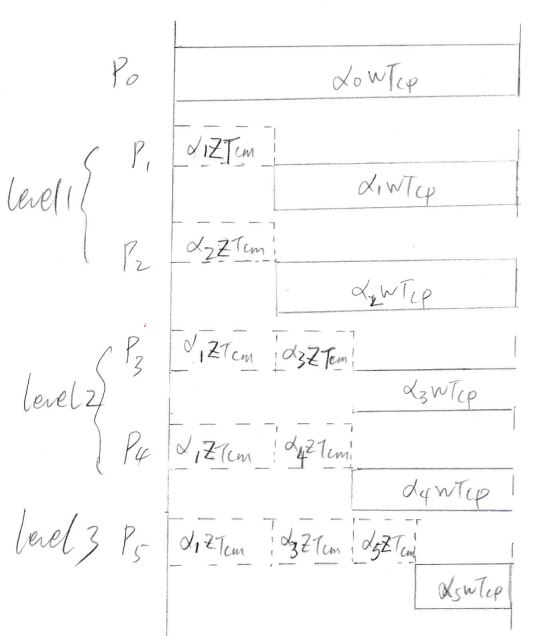 P₀ α₀wTcp
level 1
P₁ α₁ZTcm
α₁wTcp
P₂ α₂ZTcm
α₂wTcp
level 2
P₃ α₁ZTcm α₃ZTcm
α₃wTcp
P₄ α₁ZTcm α₄ZTcm
α₄wTcp
level 3 P₅ α₁ZTcm α₃ZTcm α₅ZTcm
α₅wTcp